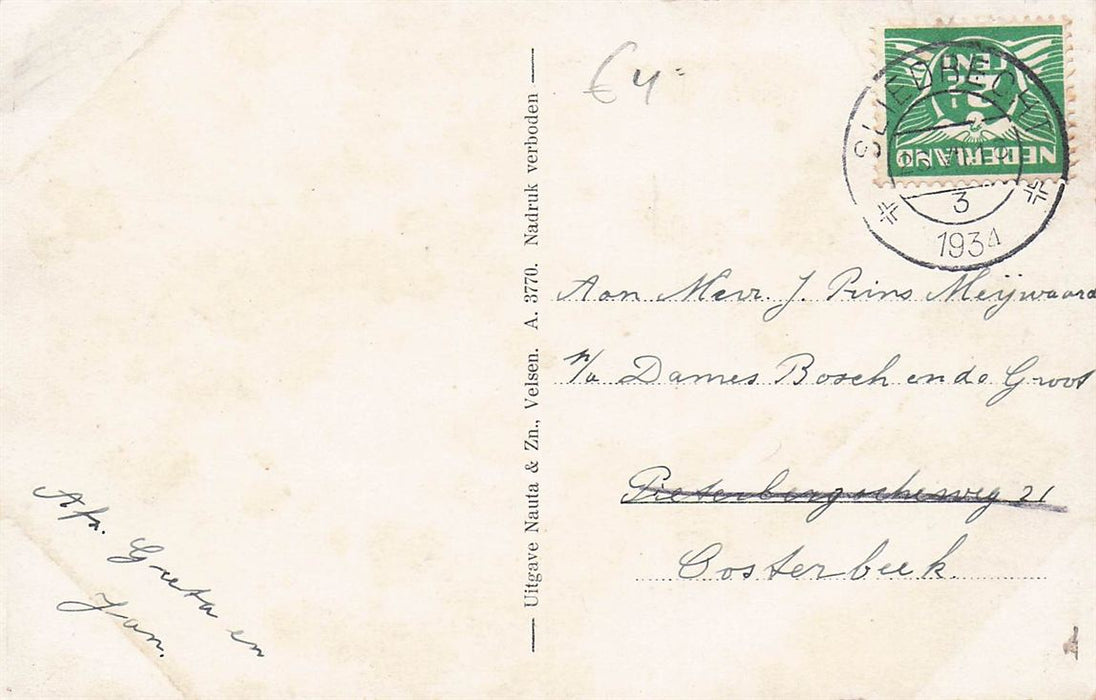 € 4
SLIEDRECHT
3
1934
NEDERLAND
CENT
Aan Mevr. J. Prins Meijwaard
p/a Dames Bosch en de Groot
Pietersbergscheweg 21
Oosterbeek.
Uitgave Nauta & Zn., Velsen. A. 3770. Nadruk verboden
Afz. Greta en
Jan.